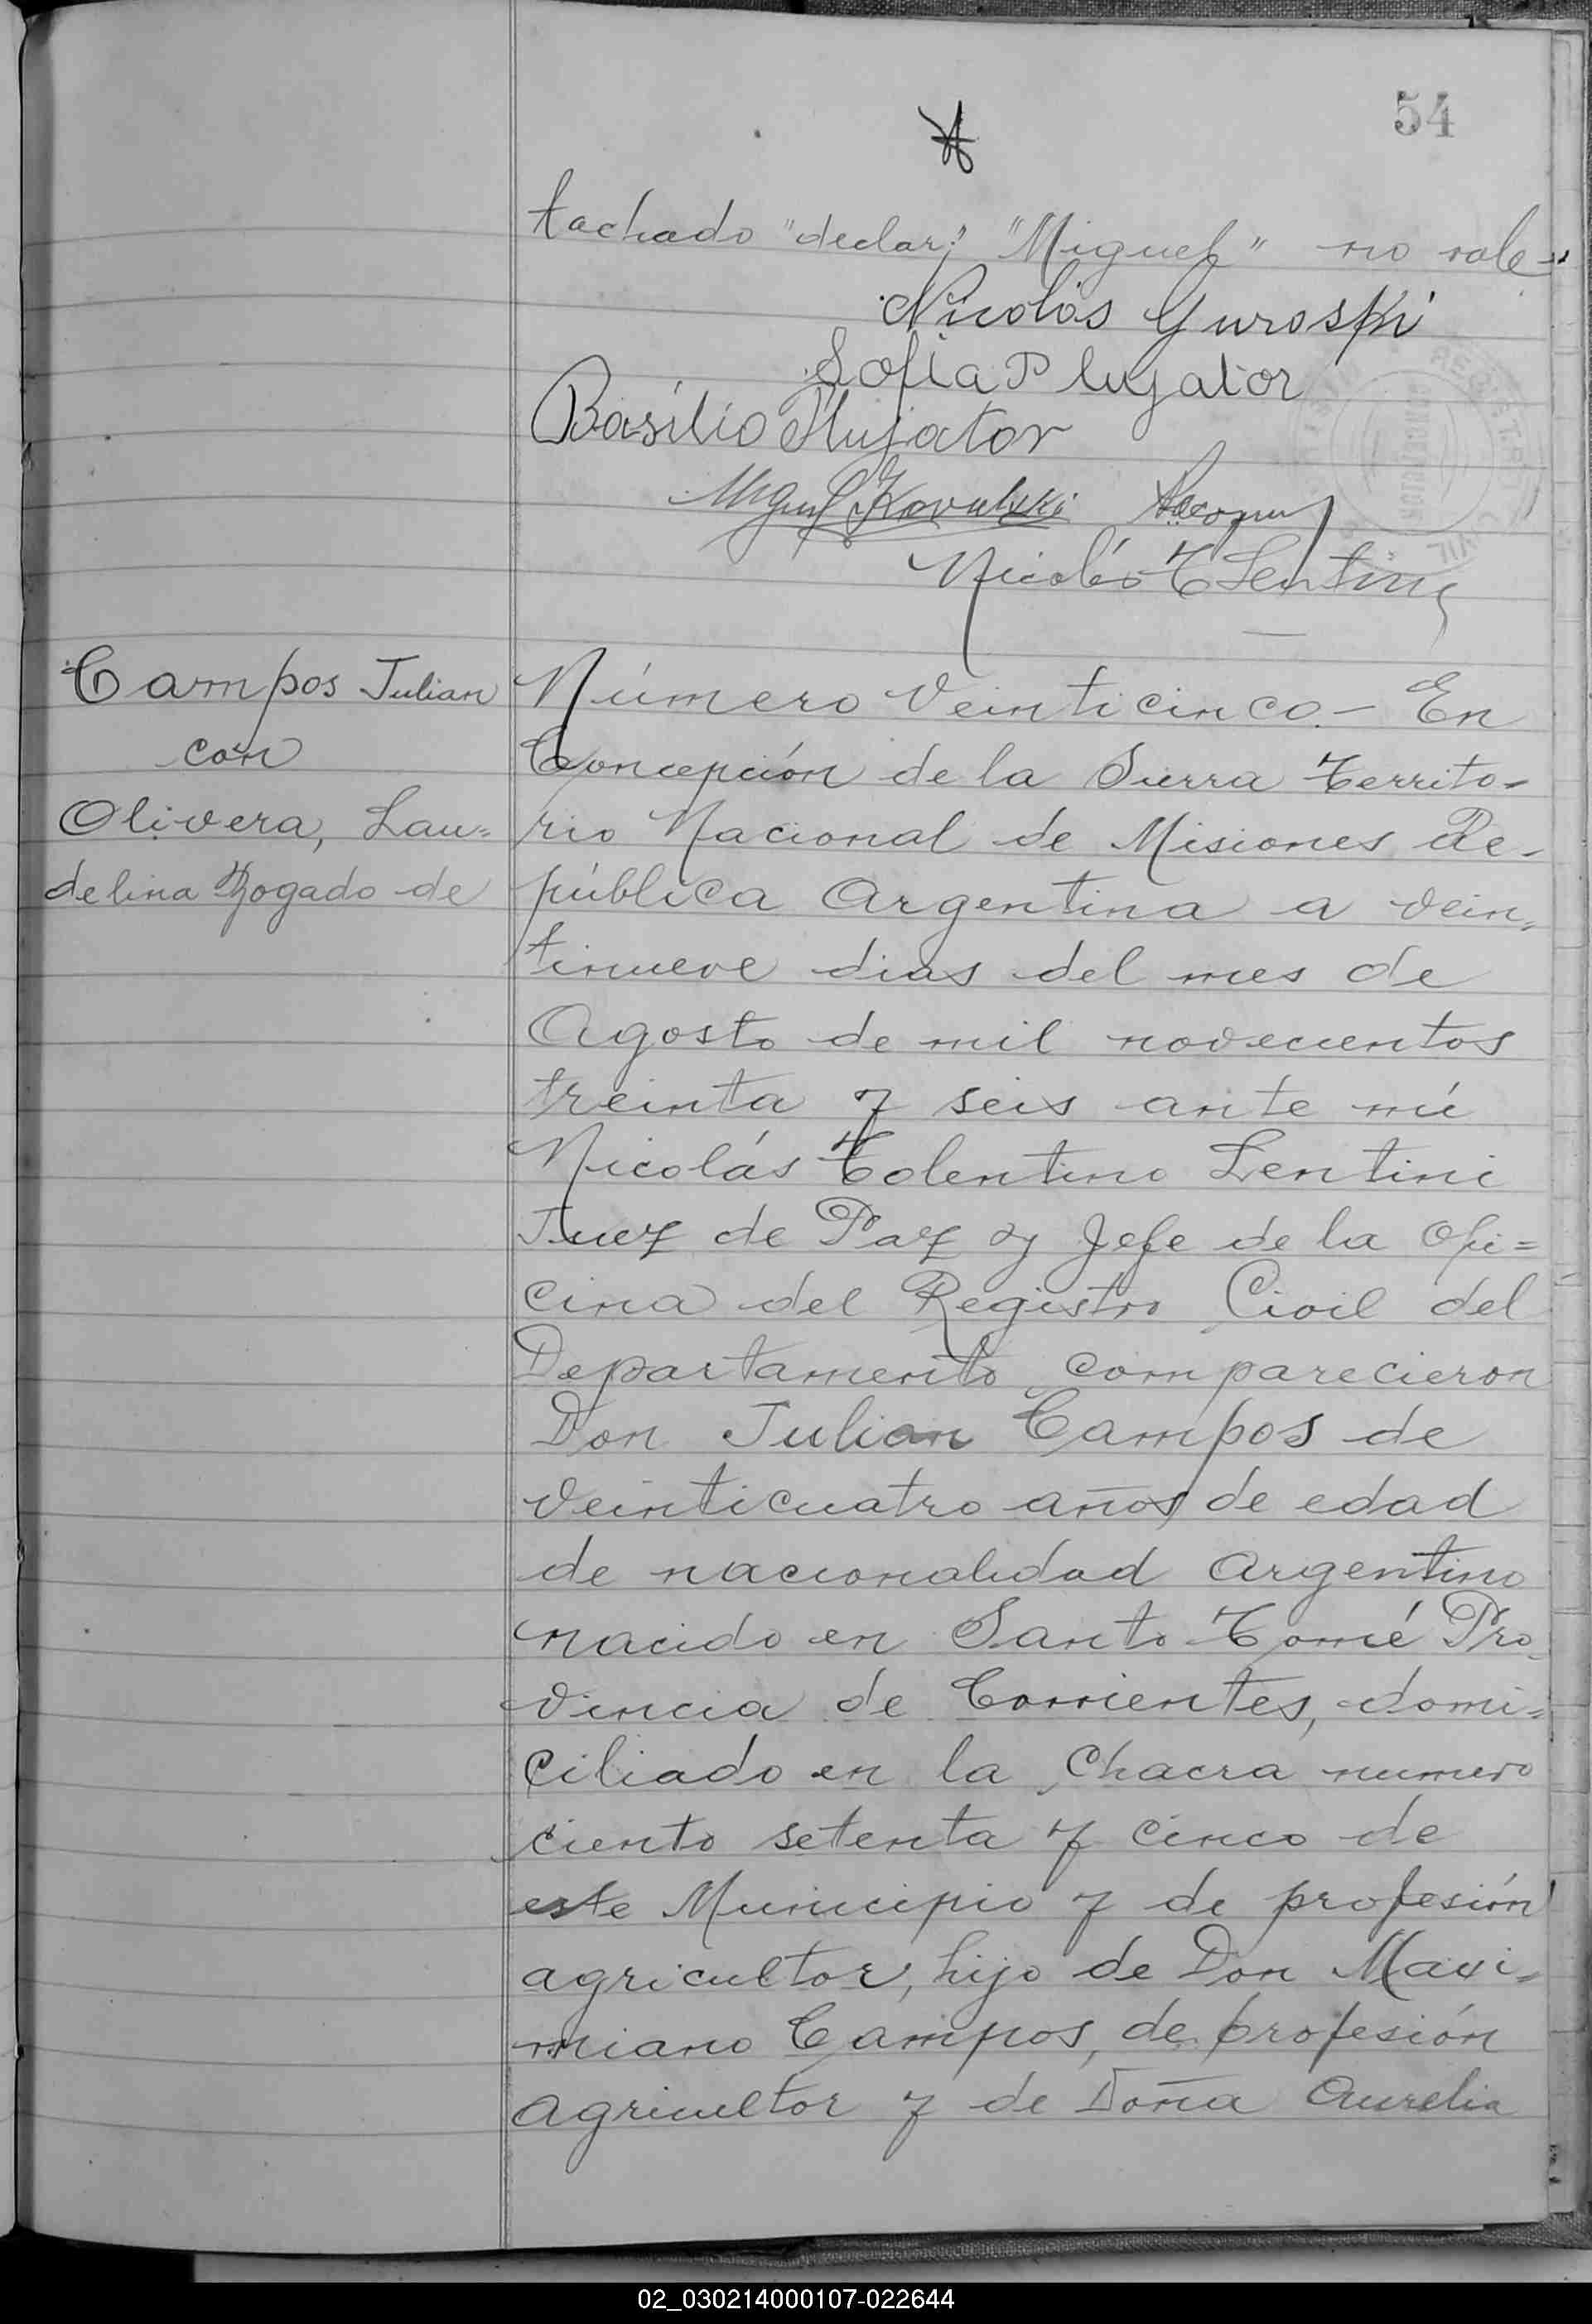 54
tachado "declar:" "Miguel" no vale.-
Nicolás Guroski
Sofia Plujator
Basilio Plujator
Miguel Kovalski
Nicolás T Lentini
Campos Julian
con
Olivera, Lau=
delina Zogado de
Número Veinticinco.- En
Concepción de la Sierra Territo-
rio Nacional de Misiones Re-
pública Argentina a vein=
tinueve dias del mes de
Agosto de mil novecientos
treinta y seis ante mí
Nicolás Tolentino Lentini
Juez de Paz y Jefe de la Ofi=
cina del Registro Civil del
Departamento comparecieron
Don Julian Campos de
veinticuatro años de edad
de nacionalidad Argentino
nacido en Santo Tomé Pro-
vincia de Corrientes, domi=
ciliado en la Chacra numero
ciento setenta y cinco de
este Municipio y de profesión
agricultor, hijo de Don Maxi=
miano Campos, de profesión
agricultor y de Doña Aurelia
02_030214000107-022644